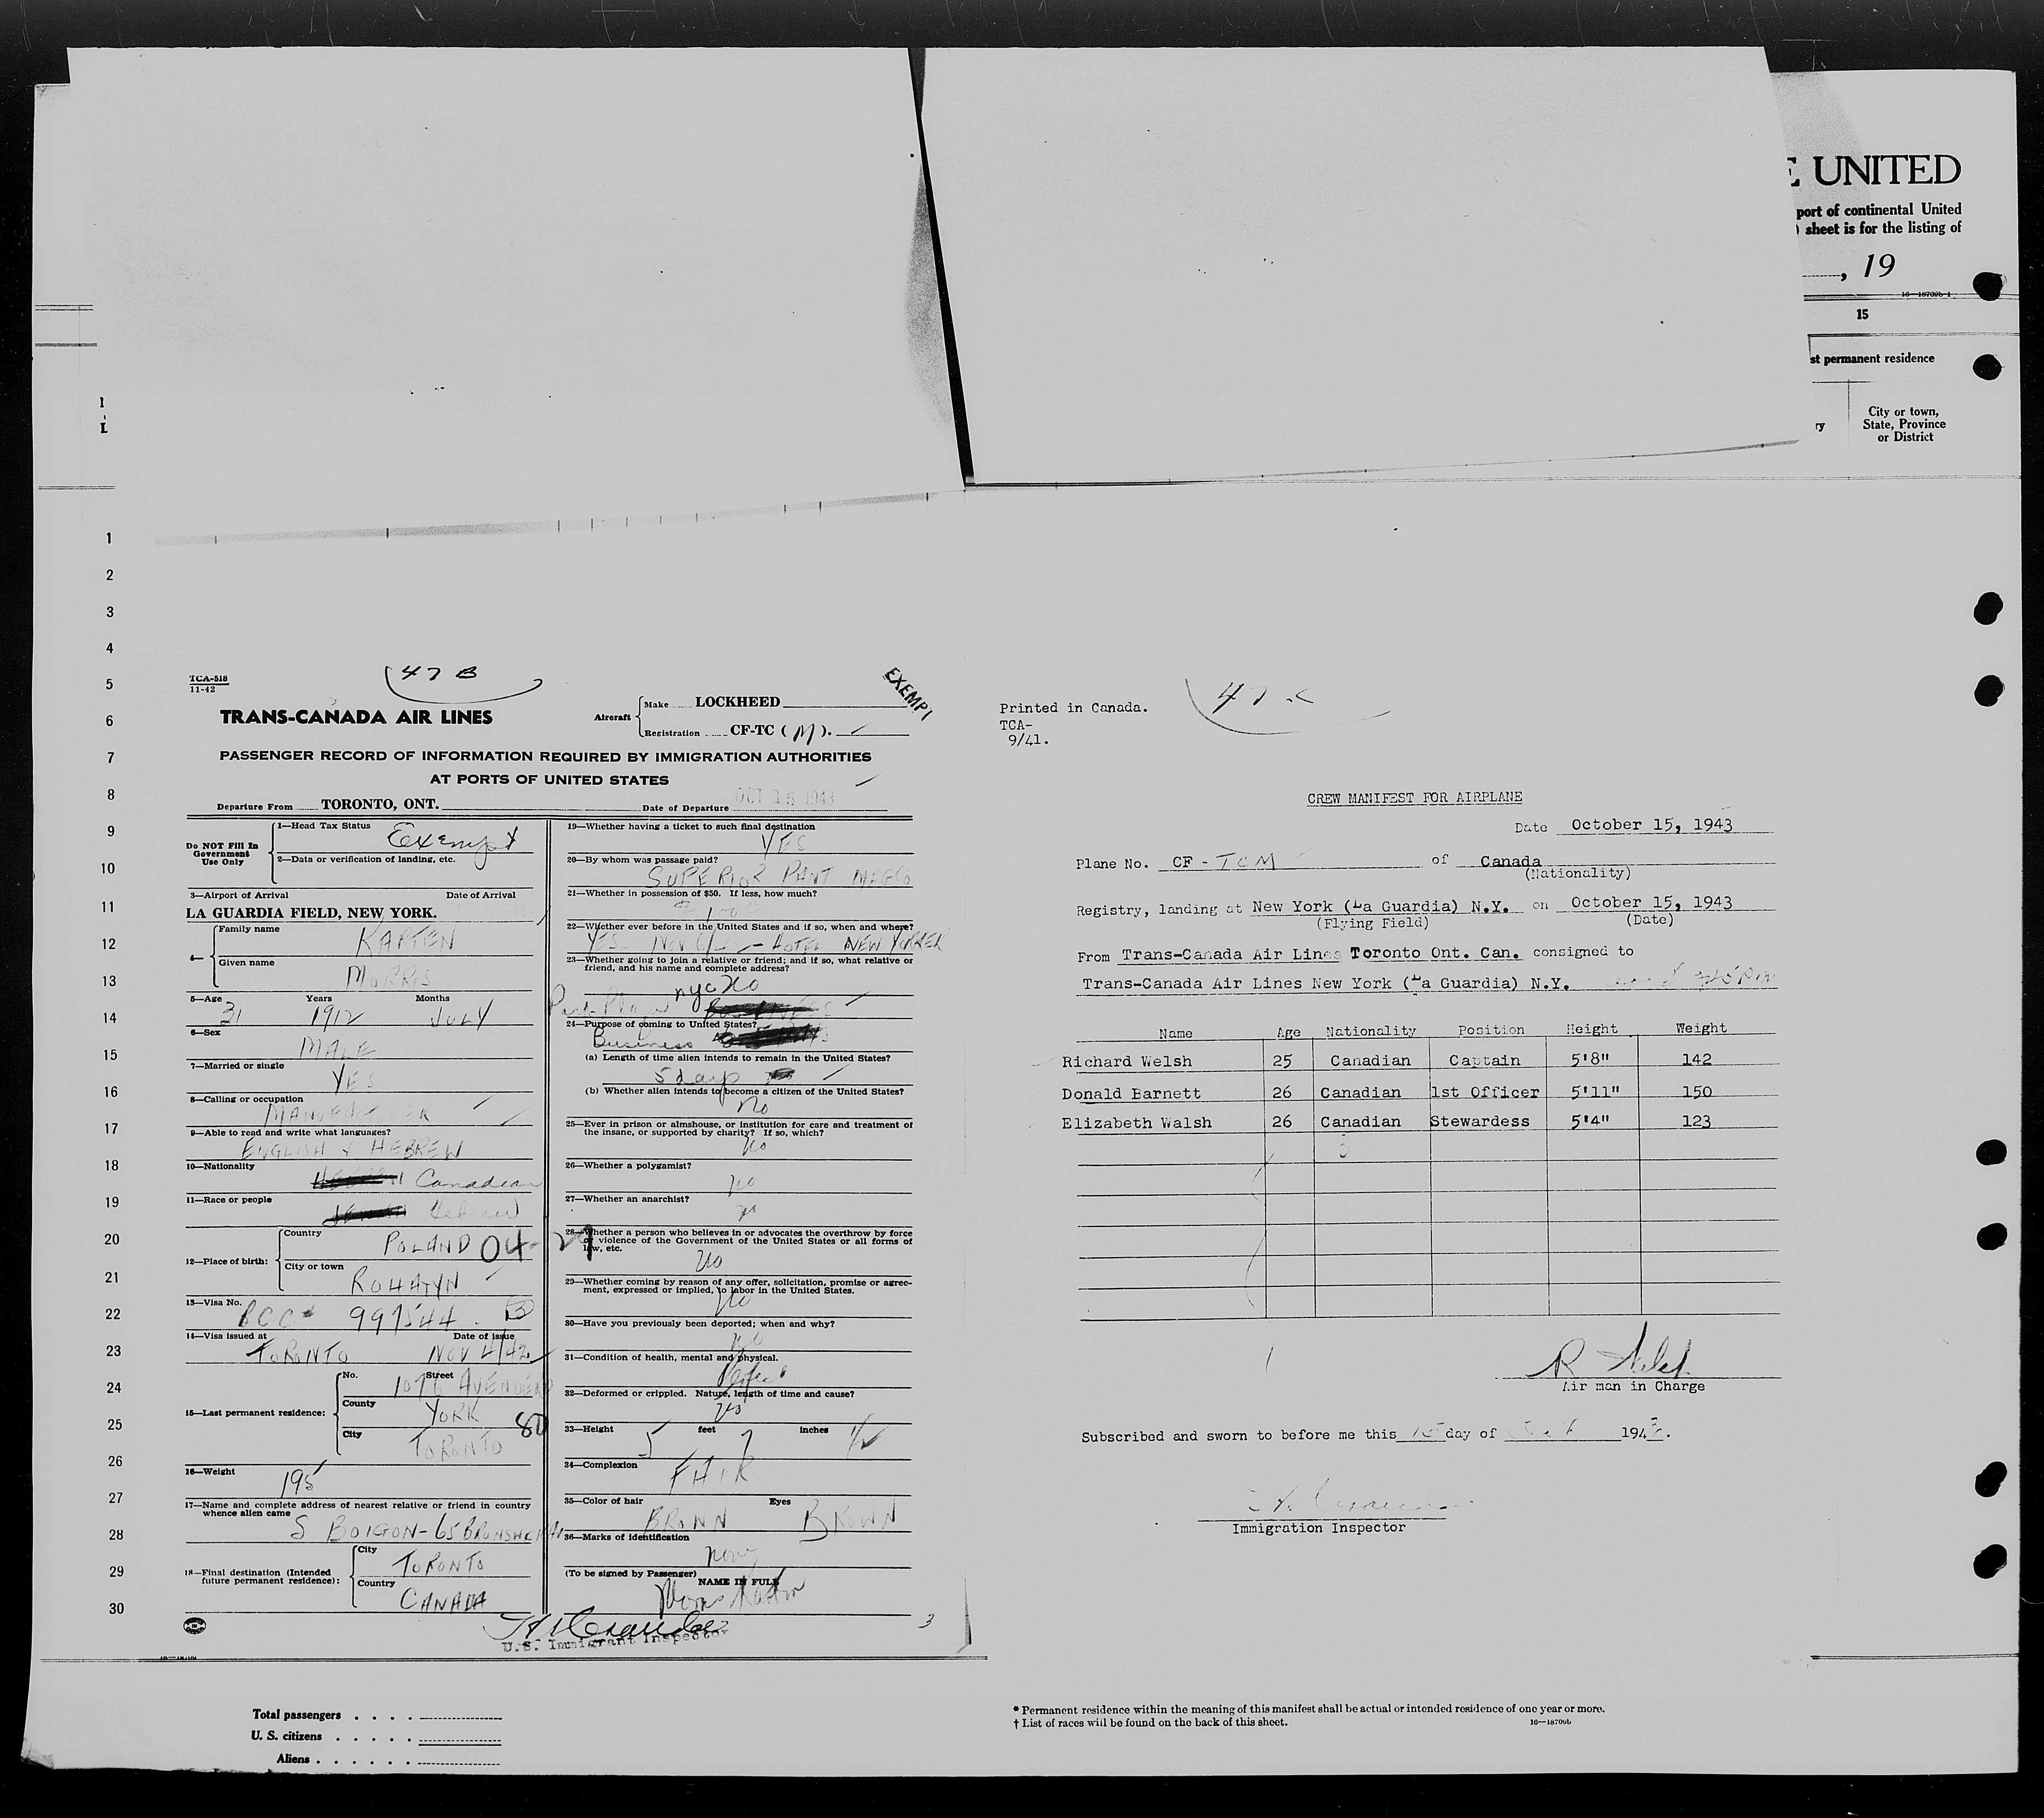 E UNITED
port of continental United
) sheet is for the listing of
, 19
16—18709b-1
15
st permanent residence
ry
City or town,
State, Province
or District
1
L
1
2
3
4
5
6
7
8
9
10
11
12
13
14
15
16
17
18
19
20
21
22
23
24
25
26
27
28
29
30
TCA-518
11-42
47 B
EXEMPT
TRANS-CANADA AIR LINES
Aircraft
Make LOCKHEED
Registration CF-TC ( M ).
PASSENGER RECORD OF INFORMATION REQUIRED BY IMMIGRATION AUTHORITIES
AT PORTS OF UNITED STATES
Departure From TORONTO, ONT. Date of Departure OCT 15 1943
Do NOT Fill In
Government
Use Only
1—Head Tax Status
Exempt
2—Data or verification of landing, etc.
3—Airport of Arrival Date of Arrival
LA GUARDIA FIELD, NEW YORK.
4—
Family name
KAPTEN
Given name
MORRIS
5—Age Years Months
31 1912 JULY
6—Sex
MALE
7—Married or single
YES
8—Calling or occupation
9—Able to read and write what languages?
ENGLISH & HEBREW
10—Nationality
Canadian
11—Race or people
Hebrew
12—Place of birth:
Country
POLAND 04-29
City or town
ROHATYN
13—Visa No.
BCC 997544
14—Visa issued at Date of issue
TORONTO NOV 4/42
15—Last permanent residence:
No. Street
County
YORK 80
City
TORONTO
16—Weight
195
17—Name and complete address of nearest relative or friend in country
whence alien came
S BOIGON - 65
18—Final destination (Intended
future permanent residence):
City
TORONTO
Country
CANADA
19—Whether having a ticket to such final destination
YES
20—By whom was passage paid?
SUPERIOR PANT
21—Whether in possession of $50. If less, how much?
22—Whether ever before in the United States and if so, when and where?
YES NOV - HOTEL NEW YORKER
23—Whether going to join a relative or friend; and if so, what relative or
friend, and his name and complete address?
nyc No
24—Purpose of coming to United States?
Business
(a) Length of time alien intends to remain in the United States?
5 days
(b) Whether alien intends to become a citizen of the United States?
No
25—Ever in prison or almshouse, or institution for care and treatment of
the insane, or supported by charity? If so, which?
No
26—Whether a polygamist?
No
27—Whether an anarchist?
no
28—Whether a person who believes in or advocates the overthrow by force
or violence of the Government of the United States or all forms of
law, etc.
No
29—Whether coming by reason of any offer, solicitation, promise or agree-
ment, expressed or implied, to labor in the United States.
No
30—Have you previously been deported; when and why?
no
31—Condition of health, mental and physical.
32—Deformed or crippled. Nature, length of time and cause?
No
33—Height 5 feet 7 inches 1/2
34—Complexion
FAIR
35—Color of hair Eyes
BROWN BROWN
36—Marks of identification
none
(To be signed by Passenger)
NAME IN FULL
U.S. Immigrant Inspector
3
Total passengers . . . .
U. S. citizens . . . . .
Aliens . . . . . .
Printed in Canada.
TCA-
9/41.
CREW MANIFEST FOR AIRPLANE
Date October 15, 1943
Plane No. CF - TCM of Canada
(Nationality)
Registry, landing at New York (La Guardia) N.Y. on October 15, 1943
(Flying Field) (Date)
From Trans-Canada Air Lines Toronto Ont. Can. consigned to
Trans-Canada Air Lines New York (La Guardia) N.Y.
Name Age Nationality Position Height Weight
Richard Welsh 25 Canadian Captain 5'8" 142
Donald Barnett 26 Canadian 1st Officer 5'11" 150
Elizabeth Walsh 26 Canadian Stewardess 5'4" 123
3
Air man in Charge
Subscribed and sworn to before me this 15 day of 1943.
Immigration Inspector
* Permanent residence within the meaning of this manifest shall be actual or intended residence of one year or more.
† List of races will be found on the back of this sheet.
16—18709b